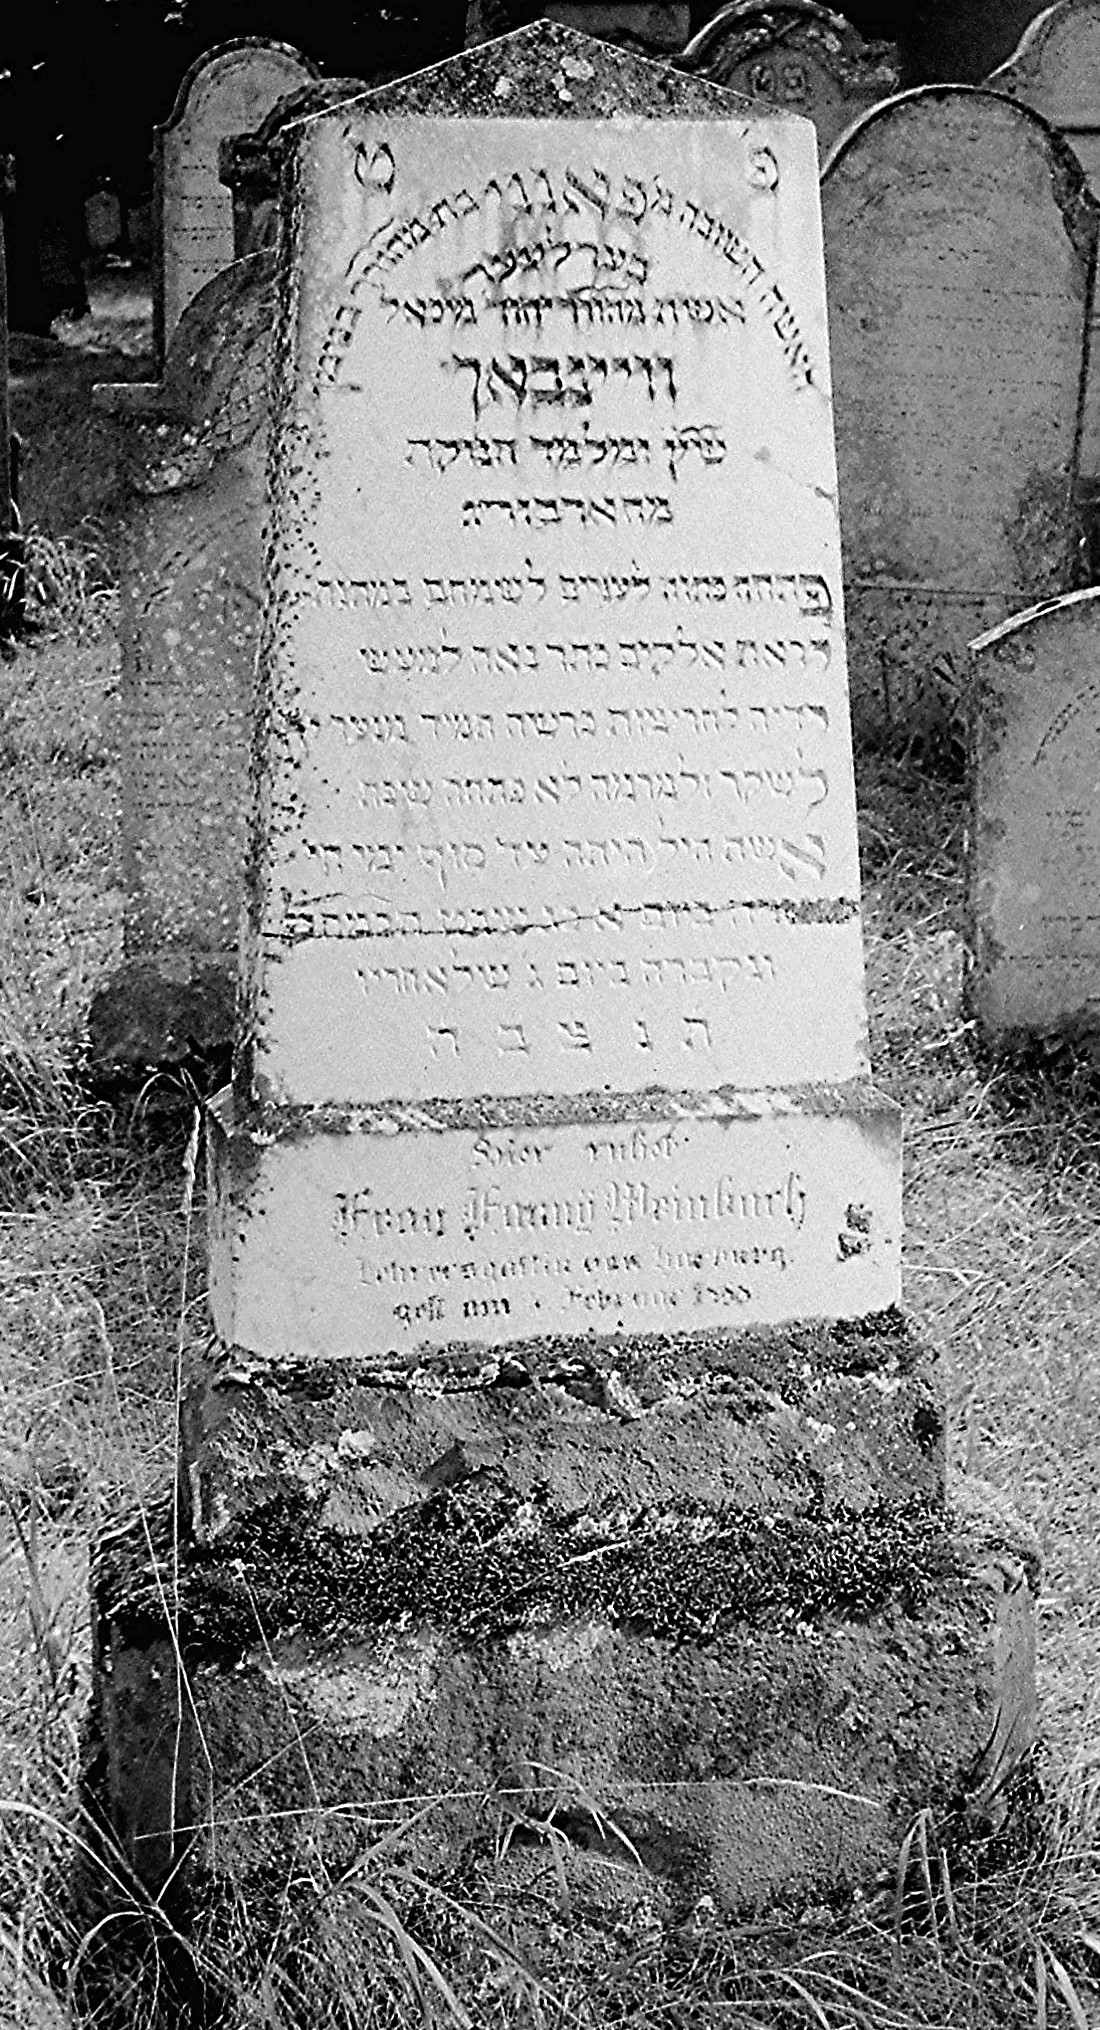 פ ט
האשה החשובה מ' פאנני בת מהורר בנימן
בערלינער
אשת מהורר יחזי מיכאל
וויינבאך
ש״ץ ומלמד תנוקת
מהארבורג
פתחה פתוח לעניים לשמחם במתנה
יראת אלקים כתר נאה למעשי
ידיה לחריצות פרשה תמיד מנער
לשקר ולמרמה לא פתחה שפת
אשה חיל היתה עד סוף ימי חי
ביום א שבט
ונקברה ביום ג שלאחריו
ת נ צ ב ה
Hier ruhet
Frau Fanny Weinbach
Lehrersgattin von Harburg.
gest. am Februar